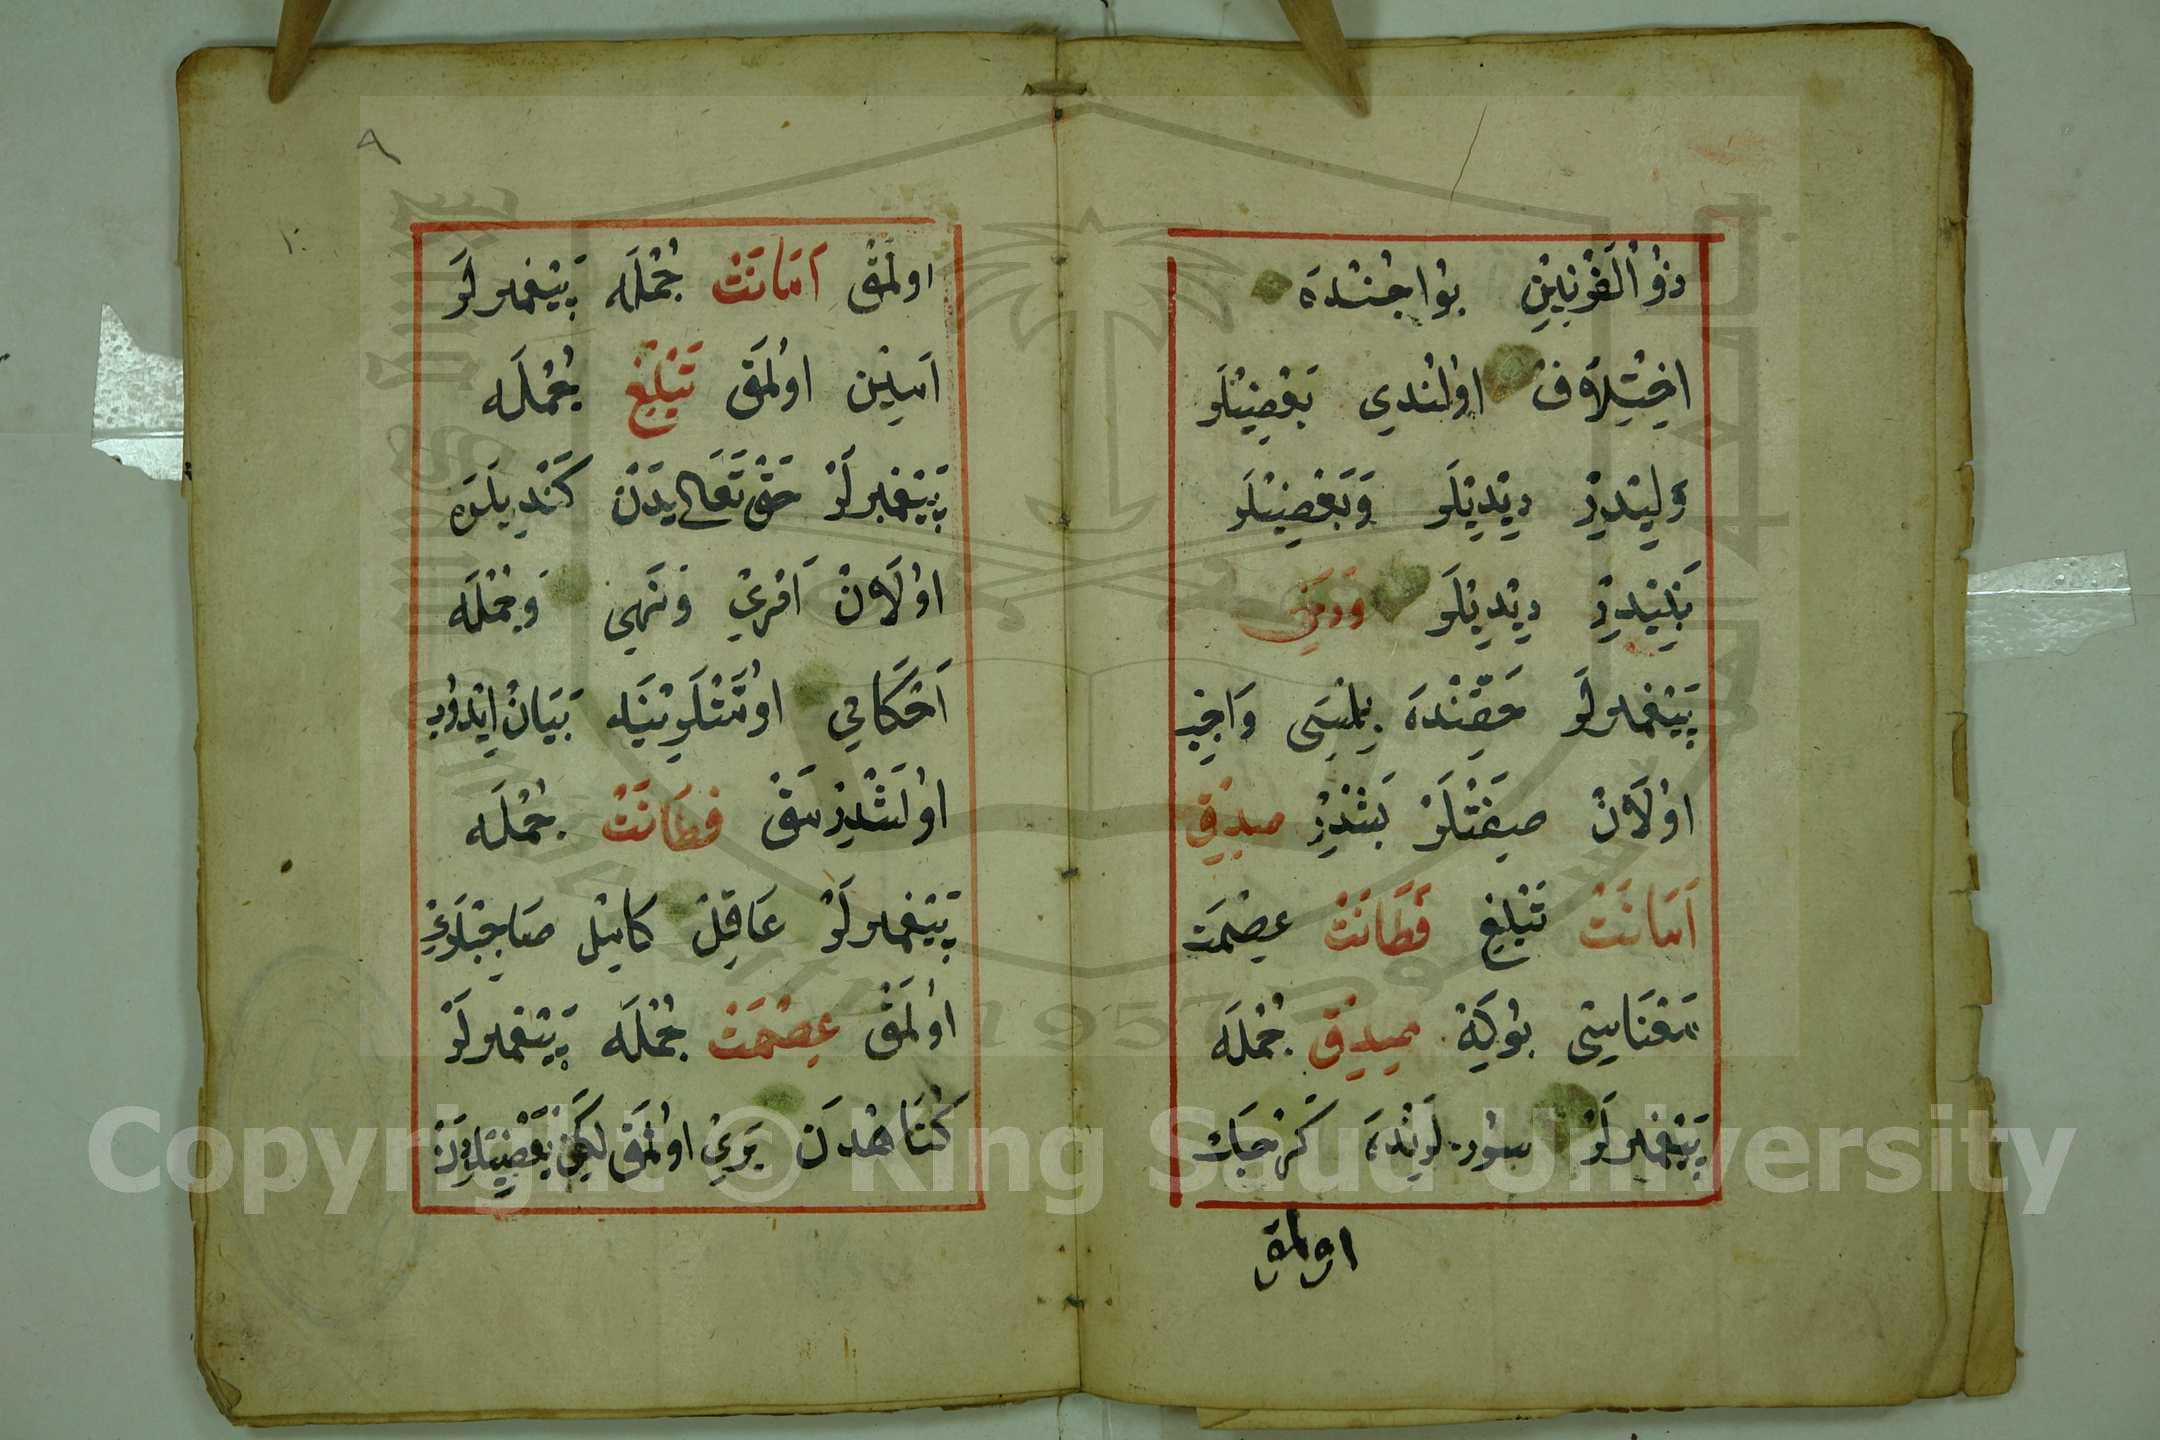 ذُو الْقَرْنَيْنِ بُو اُچُنْدَه
اِخْتِلَافْ اُولُنْدِي بَعْضِيلَر
وَلِيدِرْ دِيدِيلَر وَبَعْضِيلَر
نَبِيدِرْ دِيدِيلَر وَدَخِي
پَيْغَمْبَرلَر حَقِّنْدَه بِلْمَسِي وَاجِبْ
اُولَانْ صِفَتْلَرْ بَشْدِرْ صِدْقِ
اَمَانَتْ تَبْلِيغِ فَطَانَتْ عِصْمَتْ
مَعْنَاسِي بُوكِه صِدِقِ جُمْلَه
پَيْغَمْبَرلَرْ سُوزلَرِنْدَه گَرْچَكْ
اولمق
٩
١٠
اولْمَقْ اَمَانَتْ جُمْلَه پَيْغَمْبَرلَرْ
اَمِينْ اُولْمَقْ تَبْلِغْ جُمْلَه
پَيْغَمْبَرلَرْ حَقْ تَعَالَيدَنْ كَنْدِيلَرَه
اُولَانْ اَمْرِيْ وَنَهْي وَجُمْلَه
اَحْكَامِي اُمَّتْلَرِينَه بَيَانْ اِيدُوبْ
اُولَشْدِرْمَقْ فَطَانَتْ جُمْلَه
پَيْغَمْبَرلَرْ عَاقِلْ كَامِلْ صَاحِبْلَرِيْ
اُولْمَقْ عِصْمَتْ جُمْلَه پَيْغَمْبَرلَرْ
كُنَاهْدَنْ بَرِيْ اُولْمَقْ لَكِنْ بَعْضِيلَرْدَنْ
Copyright © King Saud University
1957